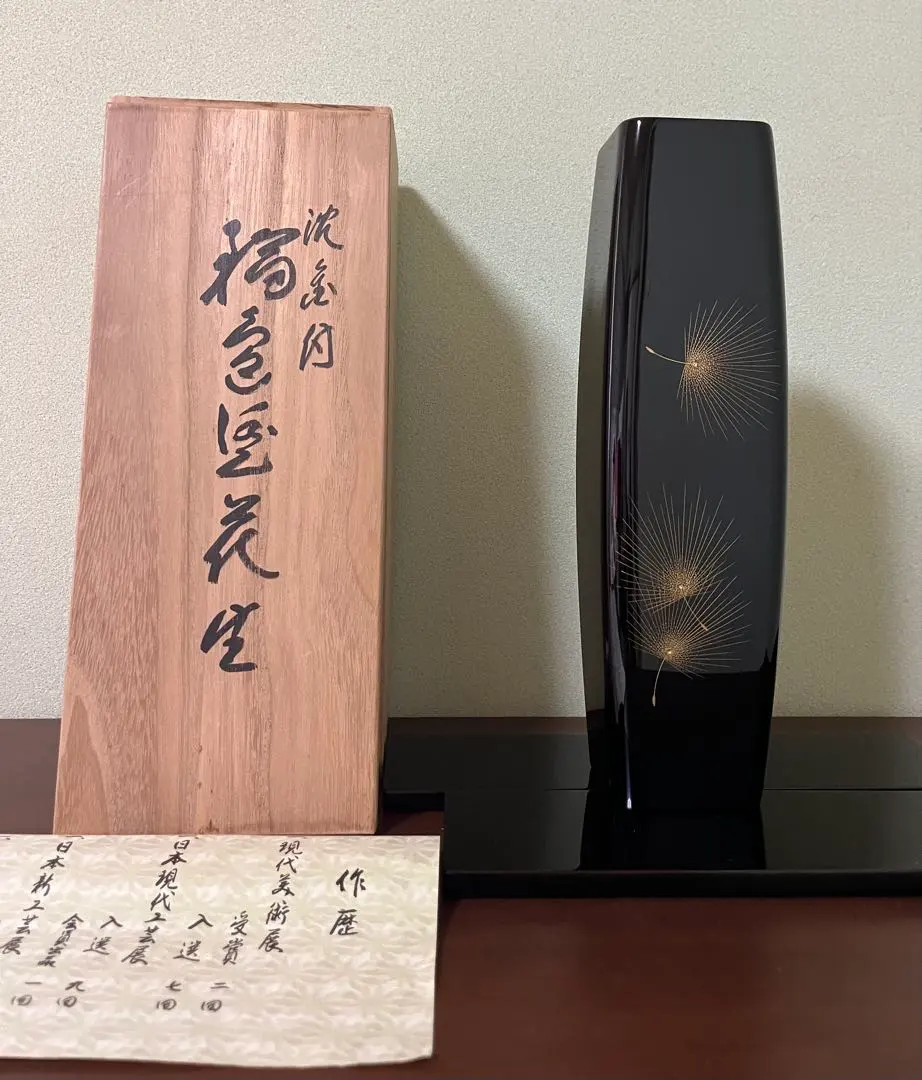 沈金付
輪島塗花生
作歴
現代美術展
受賞 二回
入選 七回
日本現代工芸展
入選 九回
日本新工芸展
一回